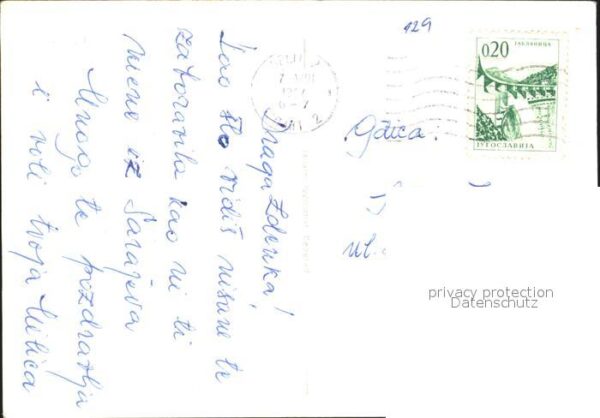 129
0,20
ЈАБЛАНИЦА
ЈУГОСЛАВИЈА
Draga Zdenka!
Kao što vidiš nisam te
zaboravila kao ni ti
mene iz Sarajeva
Mnogo te pozdravlja
i voli tvoja Milica
Gđica:
ul.
privacy protection
Datenschutz